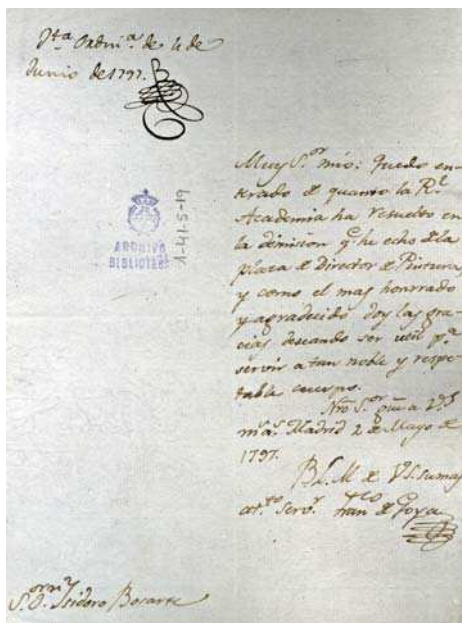 Jta Ordin.ª de 4 de
Junio de 1797.
ARCHIVO
BIBLIOTECA
1-41-5-19
Muy S.or mio: quedo en-
terado de quanto la R.l
Academia ha resuelto en
la dimision q.e he echo de la
plaza de Director de Pintura,
y como el mas honrrado
y agradecido doy las gra-
cias deseando ser util p.ª
servir a tan noble y respe-
table cuerpo.
Nro S.or gue a V.S.
m.s a.s Madrid 2 de Mayo de
1797.
B.L.M. de V.S. su mas
at.to serv.r Fran.co de Goya
S.or D.n Isidoro Bosarte